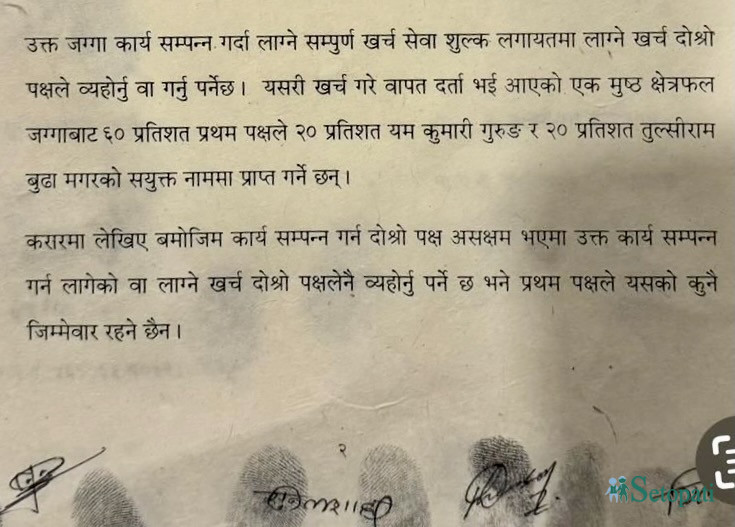 उक्त जग्गा कार्य सम्पन्न गर्दा लाग्ने सम्पुर्ण खर्च सेवा शुल्क लगायतमा लाग्ने खर्च दोश्रो
पक्षले व्यहोर्नु वा गर्नु पर्नेछ। यसरी खर्च गरे वापत दर्ता भई आएको एक मुष्ठ क्षेत्रफल
जग्गाबाट ६० प्रतिशत प्रथम पक्षले २० प्रतिशत यम कुमारी गुरुङ र २० प्रतिशत तुल्सीराम
बुढा मगरको सयुक्त नाममा प्राप्त गर्ने छन्।
करारमा लेखिए बमोजिम कार्य सम्पन्न गर्न दोश्रो पक्ष असक्षम भएमा उक्त कार्य सम्पन्न
गर्न लागेको वा लाग्ने खर्च दोश्रो पक्षलेनै व्यहोर्नु पर्ने छ भने प्रथम पक्षले यसको कुनै
जिम्मेवार रहने छैन।
२
Setopati